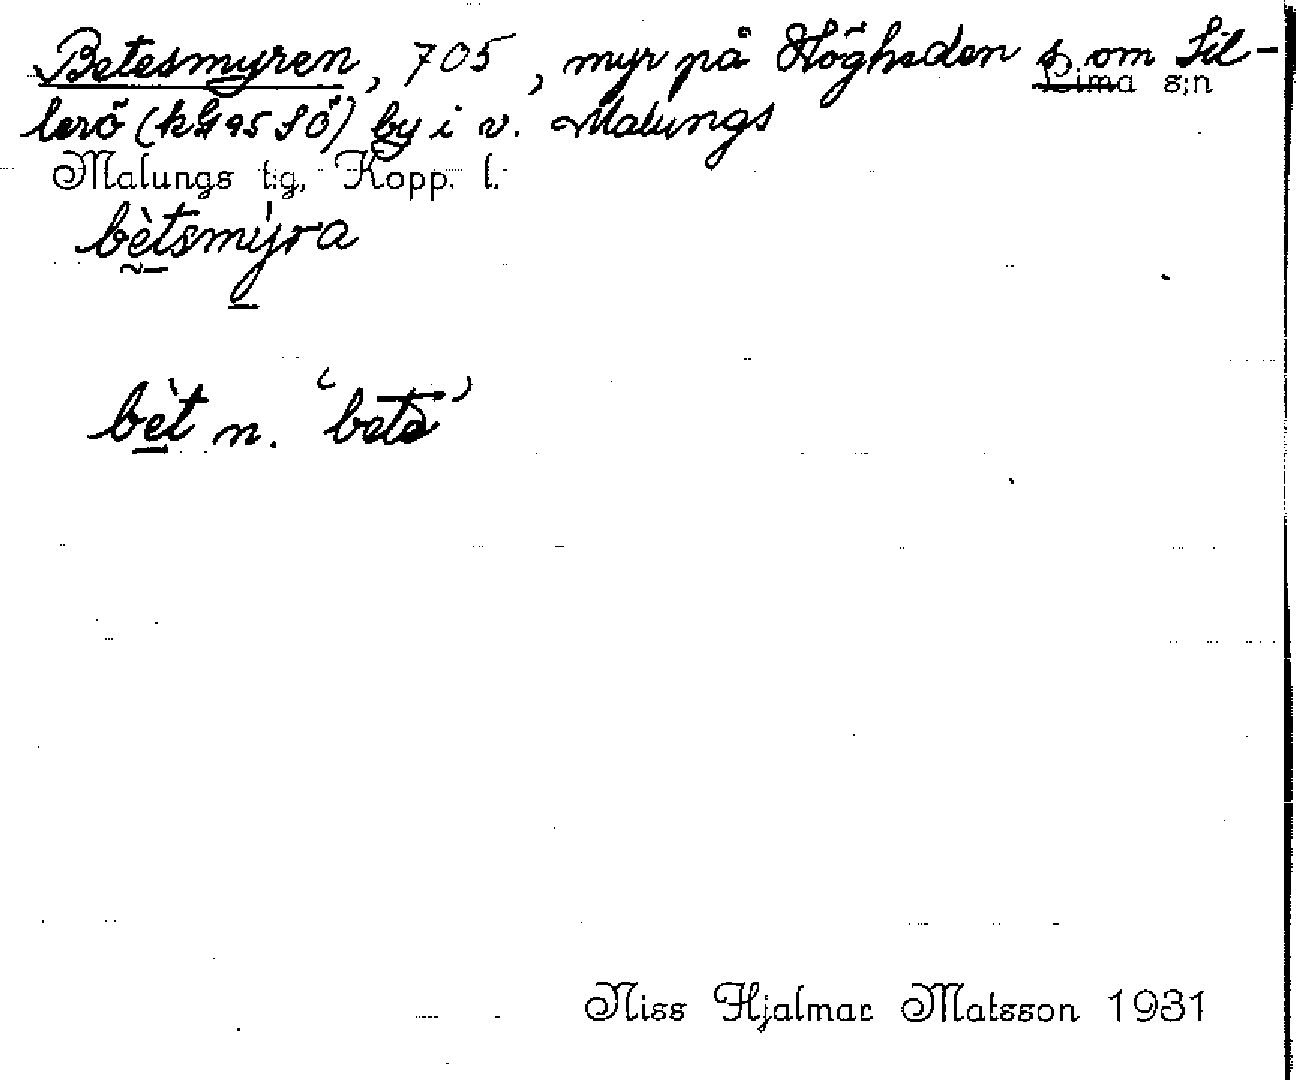 Betesmyren, 705, myr på Högheden s. om Sil-
Lima s:n
lerö (kG95SÖ) by i v. Malungs
Malungs t:g, Kopp. l.
bètsmỳra
bèt n. 'bete'
Niss Hjalmar Matsson 1931